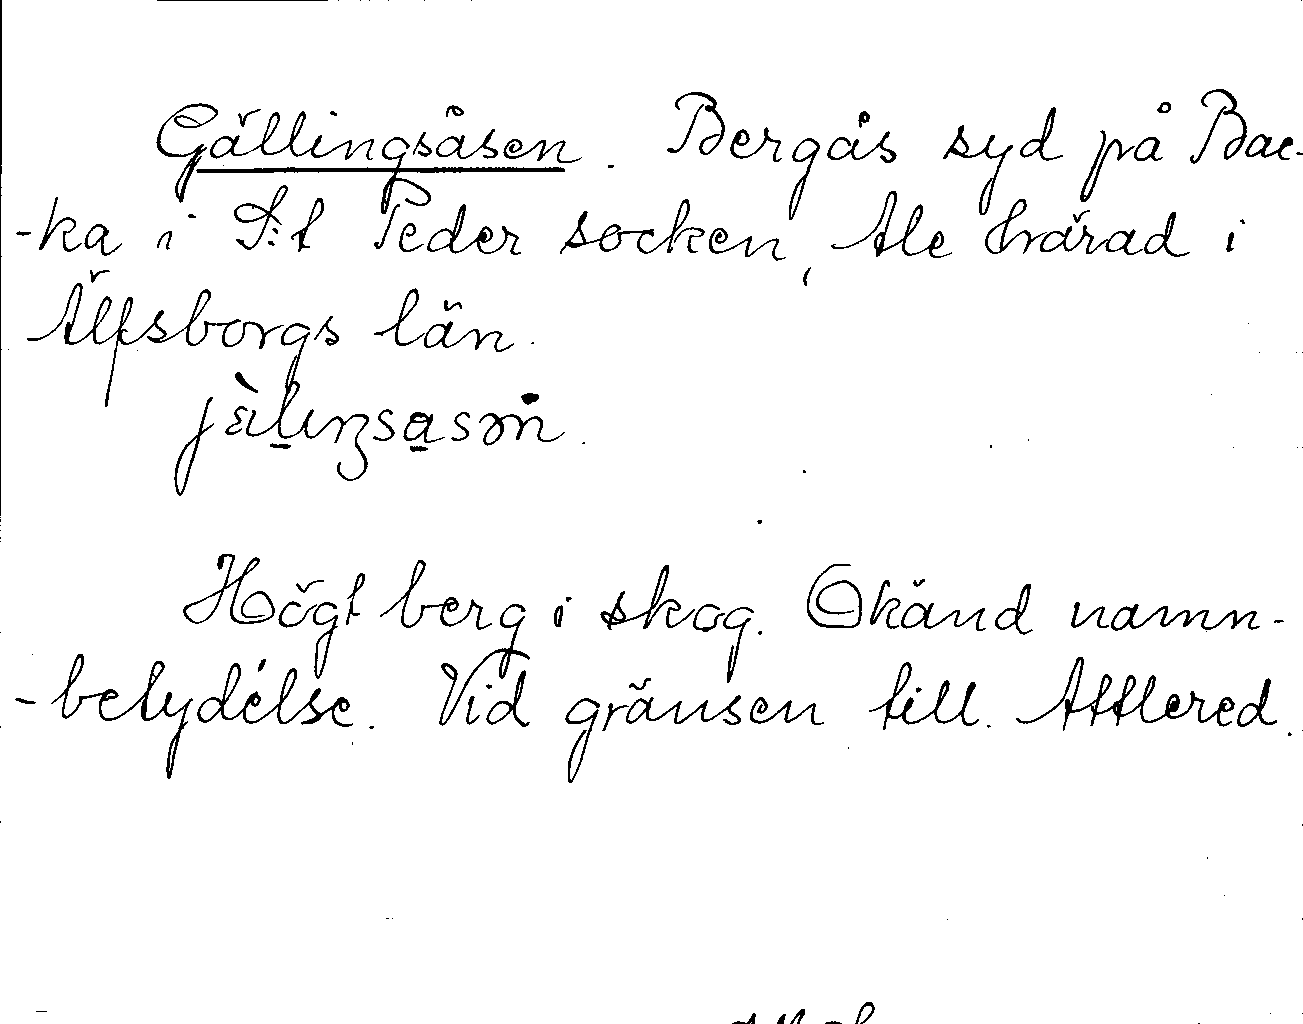 Gällingsåsen. Bergås syd på Bac-
-ka i S:t Peder socken, Ale härad i
Älfsborgs län.
Högt berg i skog. Okänd namn-
-betydélse. Vid gränsen till Attlered.